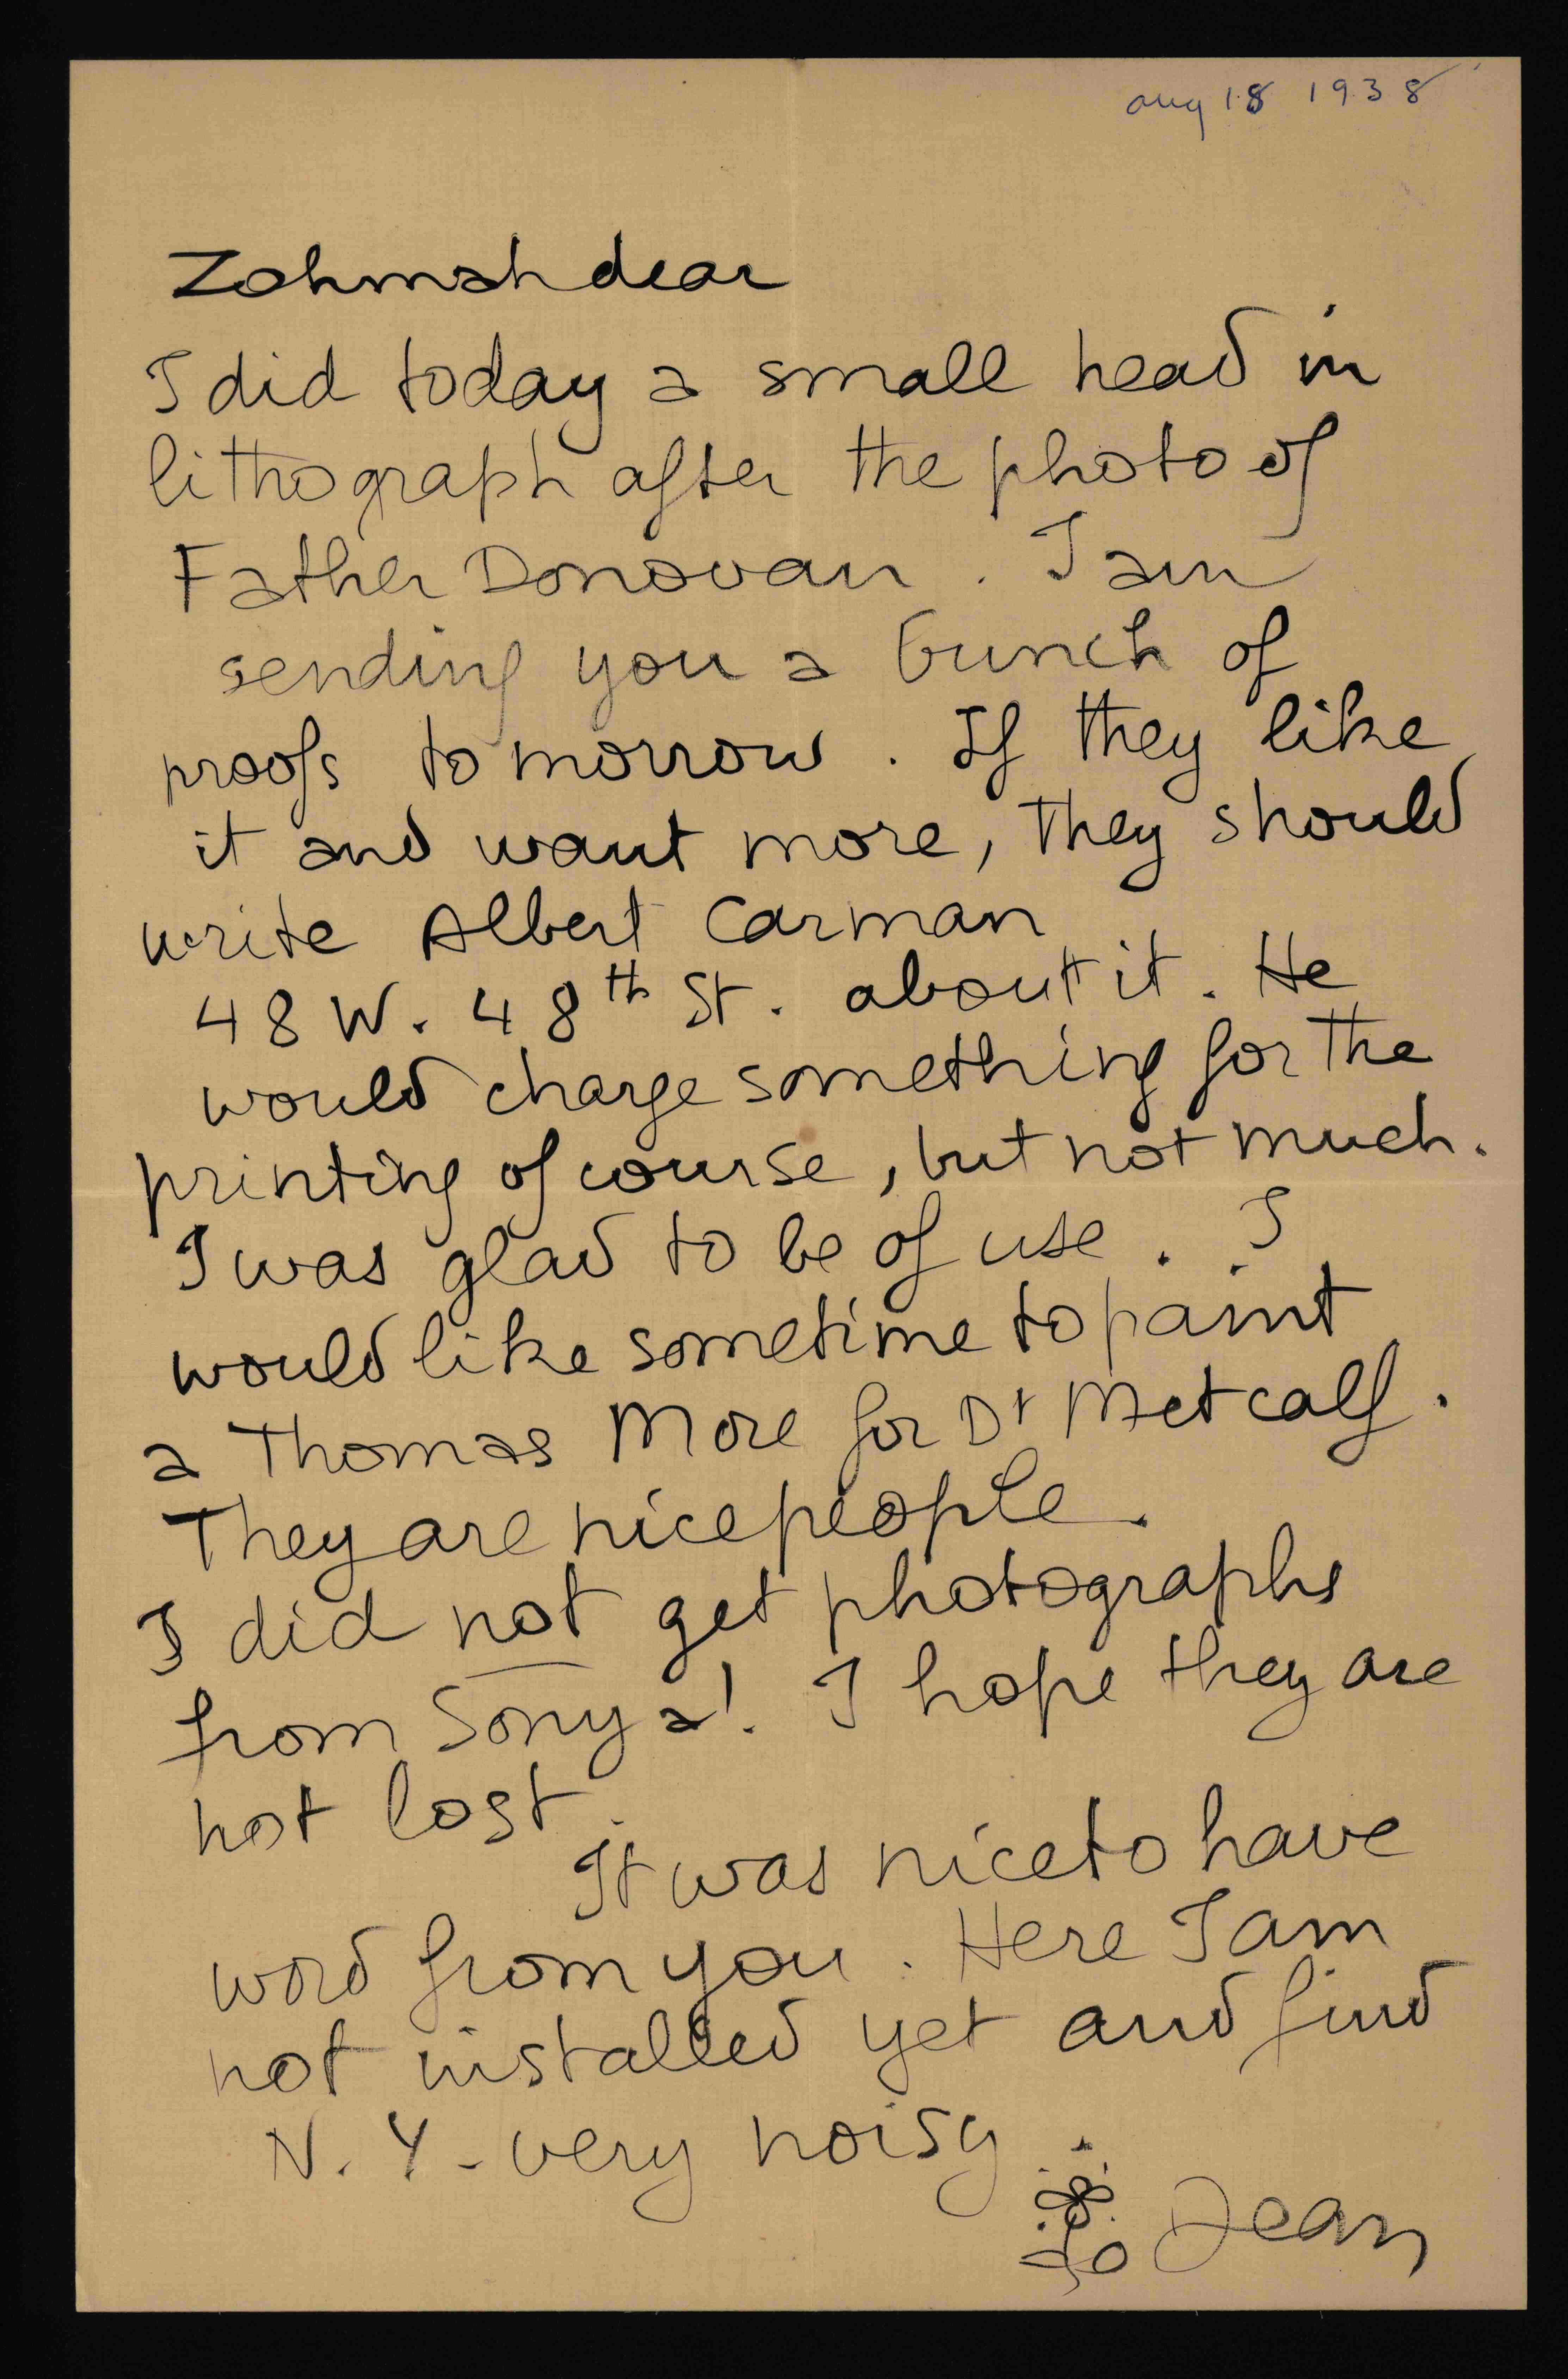 aug 18 1938
Zohmah dear
I did today a small head in
lithograph after the photo of
Father Donovan. I am
sending you a bunch of
proofs tomorrow. If they like
it and want more, they should
write Albert Carman
48 W. 48th St. about it. He
would charge something for the
printing of course, but not much.
I was glad to be of use. I
would like sometime to paint
a Thomas More for Dr Metcalf.
They are nice people.
I did not get photographs
from Sonya! I hope they are
not lost.
It was nice to have
word from you. Here I am
not installed yet and find
N.Y. very noisy.
Jean